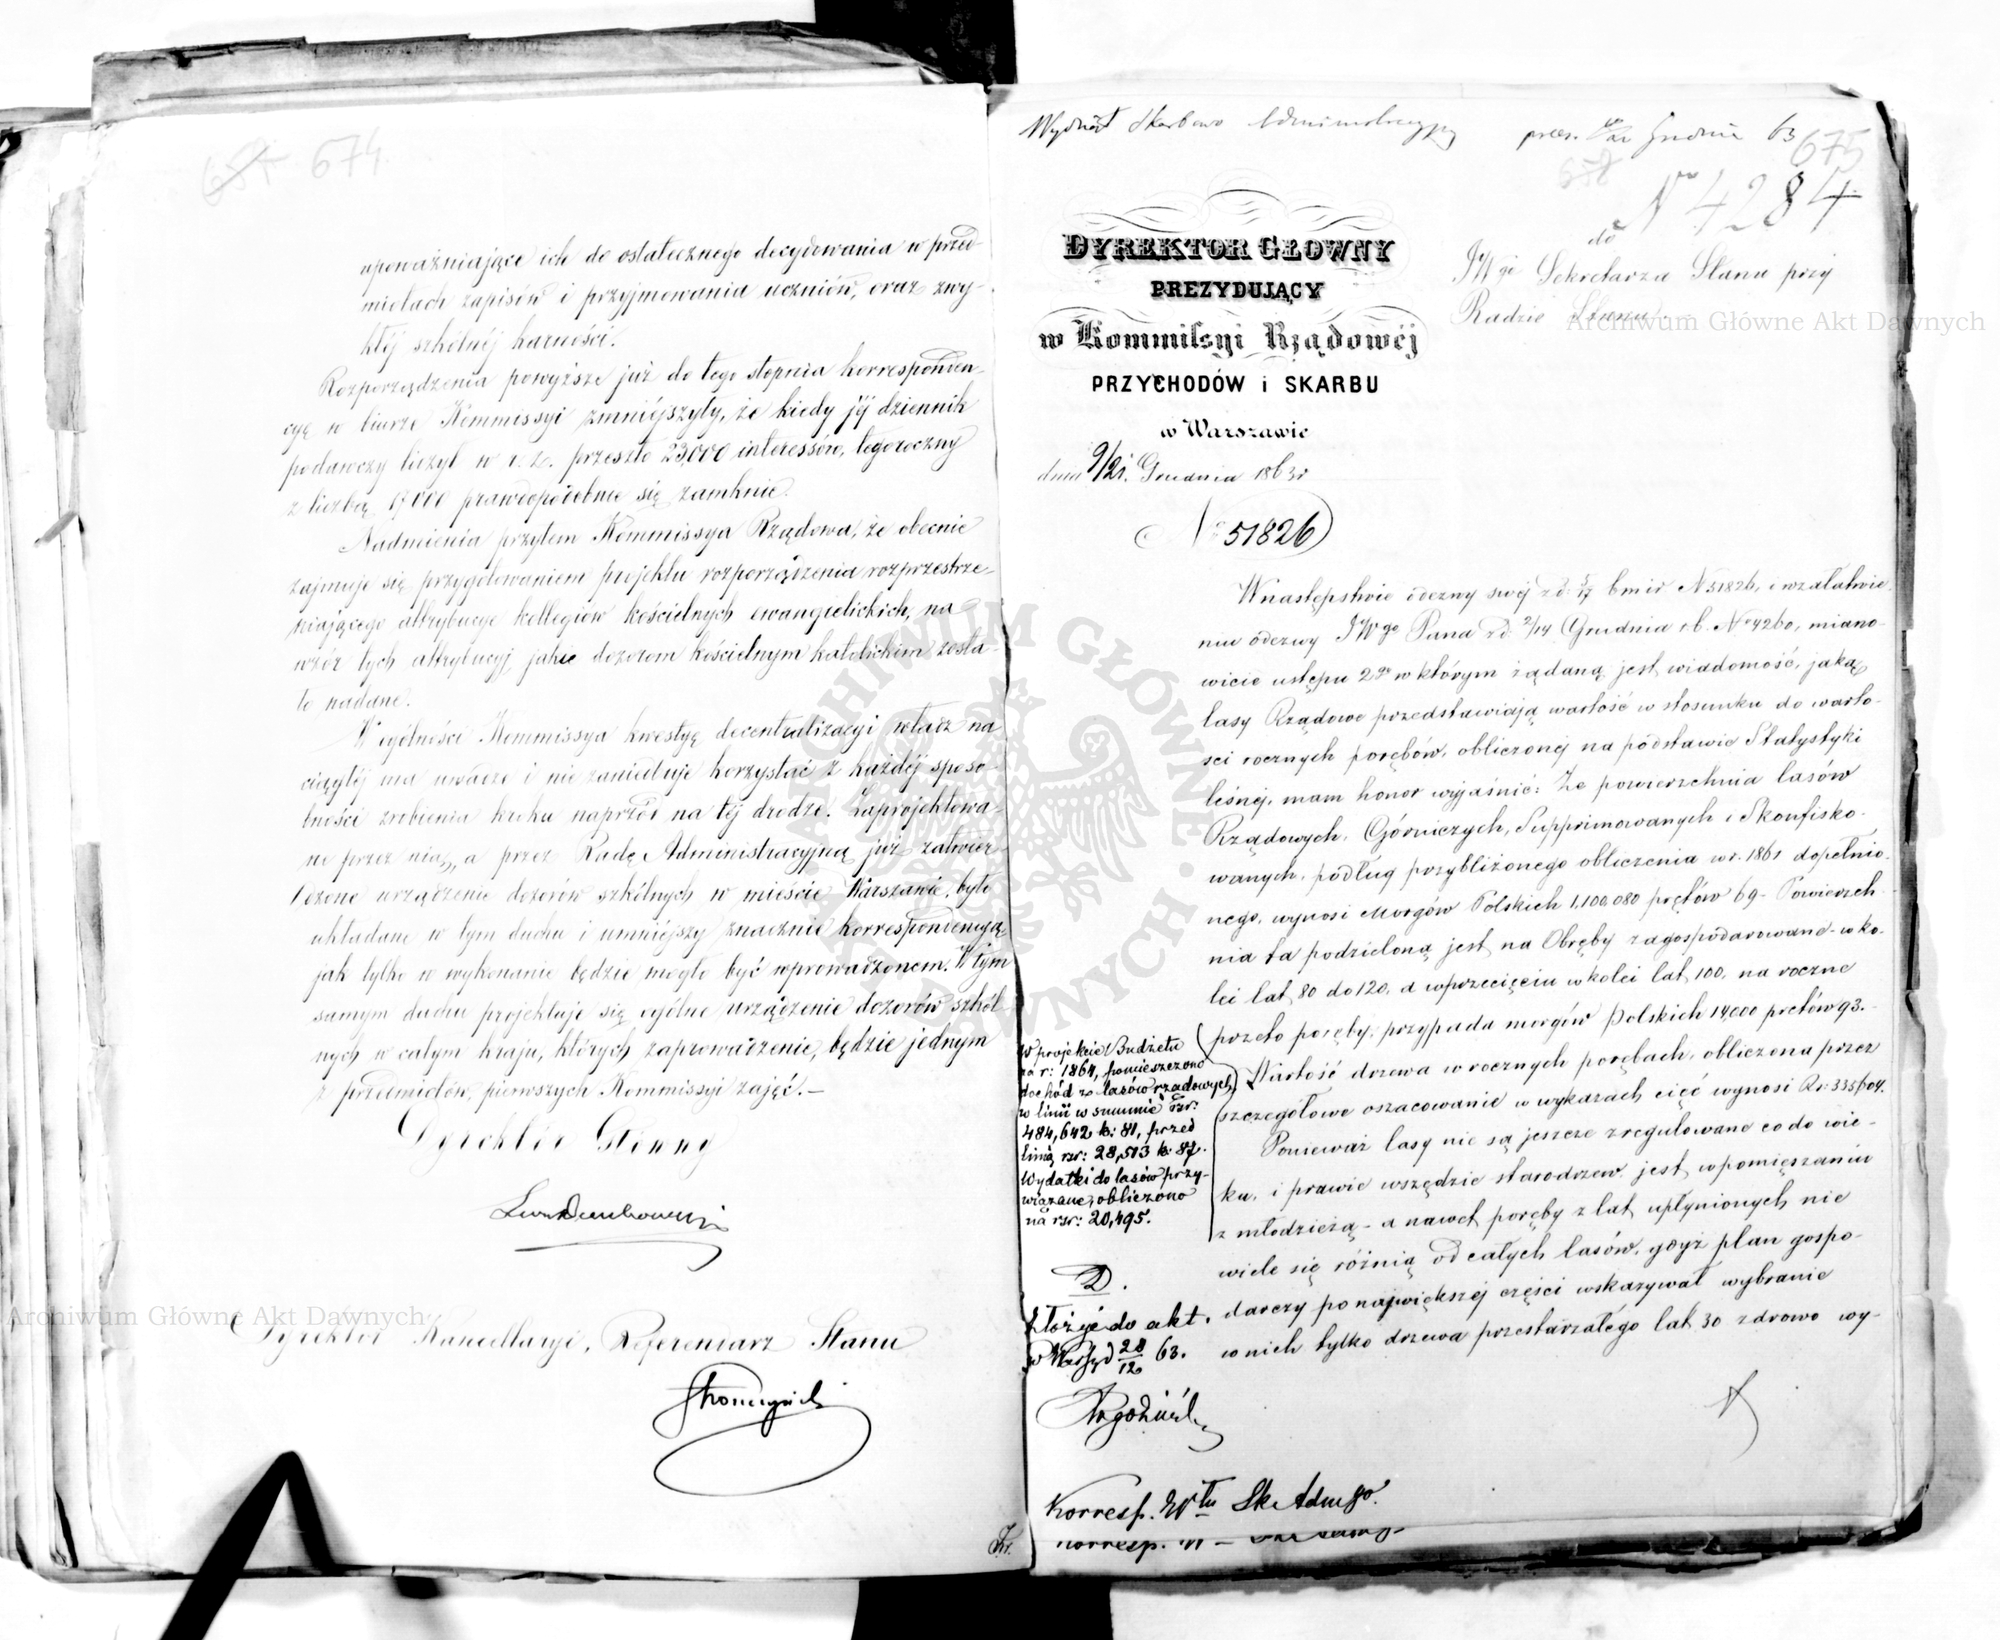 674
upoważniające ich do ostatecznego decydowania w przed-
miotach zapisów i przyjmowania uczniów, oraz zwy-
kłéj szkólnéj karności.
Rozporządzenia powyższe już do tego stopnia korresponden-
cyę w biurze Kommissyi zmniéjszyły, że kiedy jéj dziennik
podawczy liczył w r. z. przeszło 23,000 interessów, tegoroczny
z liczbą 19,000 prawdopodobnie się zamknie.
Nadmienia przytem Kommissya Rządowa, że obecnie
zajmuje się przygotowaniem projektu rozporządzenia rozprzestrze-
niającego attrybucye kollegiów kościelnych ewangielickich, na
wzór tych attrybucyj, jakie dozorom kościelnym katolickim zosta-
ło nadane.
W ogólności Kommissya kwestyę decentralizacyi wciąż na
ciągłéj ma uwadze i nie zaniedbuje korzystać z każdéj sposo-
bności zrobienia kroku naprzód na téj drodze. Zaprojektowa-
ne przez nią, a przez Radę Administracyjną już zatwier-
dzone urządzenie dozorów szkólnych w mieście Warszawie, było
układane w tym duchu i umniejszy znacznie korrespondencyą
jak tylko w wykonanie będzie mogło być wprowadzonem. W tym
samym duchu projektuje się ogólne urządzenie dozorów szkól-
nych w całym kraju, których zaprowadzenie, będzie jednym
z przedmiotów, pierwszych Kommissyi zajęć.—
Dyrektór Główny
Dyrektor Kancellaryi, Referendarz Stanu
Wydział Skarbowo Administracyjny
prez. Grudnia 63
675
658
No 4284
DYREKTOR GŁOWNY
PREZYDUJĄCY
w Kommissyi Rządowéj
PRZYCHODÓW i SKARBU
w Warszawie
dnia 9/21. Grudnia 1863 r
No 51826
do
JWgo Sekretarza Stanu przy
Radzie Stanu.
W następstwie odezwy swéj z d. 5/17 b m i r N 51826, i w załatwie-
niu odezwy JWgo Pana z d 2/14 Grudnia r.b. No 4260, miano-
wicie ustępu 2go w którym żądaną jest wiadomość, jaką
lasy Rządowe przedstawiają wartość w stosunku do warto-
ści rocznych porębów, obliczonéj na podstawie Statystyki
leśnéj, mam honor wyjaśnić: Że powierzchnia lasów
Rządowych, Górniczych, Supprimowanych i Skonfisko-
wanych, podług przybliżonego obliczenia w r. 1861 dopełnio-
nego, wynosi Morgów Polskich 1,100,080 prętów 69 – Powierzch-
nia ta podzieloną jest na Obręby zagospodarowane w ko-
lei lat 80 do 120, a w przecięciu w kolei lat 100, na roczne
przeto poręby, przypada morgów Polskich 11,000 prętów 93.–
Wartość drzewa w rocznych porębach, obliczona przez
szczegółowe oszacowanie w wykazach cięć wynosi Rs: 335,704.
Ponieważ lasy nie są jeszcze zregulowane co do wie-
ku, i prawie wszędzie starodrzew jest w pomięszaniu
z młodzieżą – a nawet poręby z lat upłynionych nie
wiele się różnią od całych lasów, gdyż plan gospo-
darczy po największéj części wskazywał wybranie
w nich tylko drzewa przestarzałego lat 30 zdrowo wy-
W projekcie Budżetu
na r: 1864, pomieszczono
dochód z lasów rządowych,
w linii w summie rsr:
484,642 k: 81, przed
linią rsr: 28,513 k: 87.
Wydatki do lasów przy-
wiązane, obliczono
na rsr: 20,495.
D.
Złożyć do akt.
28/12 63.
Korresp. Włu Sk. Admgo.